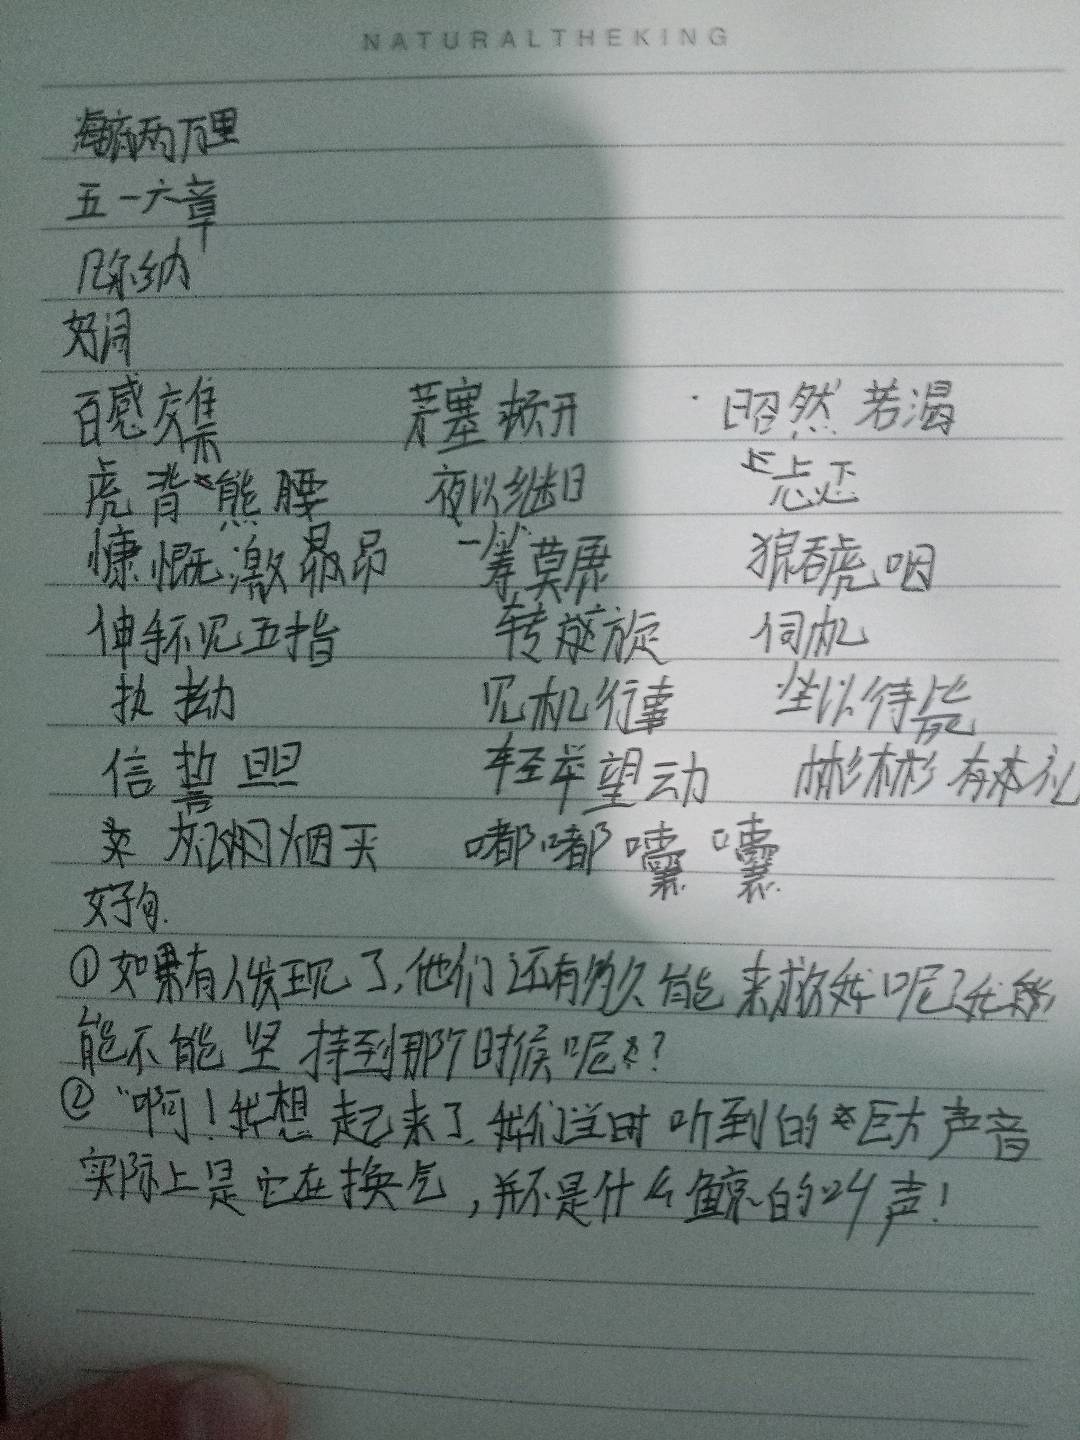 NATURALTHEKING
海底两万里
五一六章
凡尔纳
好词
百感交集 茅塞 开 昭然若渴
虎背熊腰 夜以继日 忐忑
慷慨激昂昂 一筹莫展 狼吞虎咽
伸手不见五指 转旋 伺机
执拗 见机行事 坐以待毙
信誓旦旦 轻举望动 彬彬有礼
灰烟灭 嘟嘟囔囔
好句.
①如果有人发现了,他们还有多久能来救我呢?我能
能不能坚持到那个时候呢?
②“啊!我想起来了,我们当时听到的巨大声音
实际上是它在换气,并不是什么鲸的叫声!